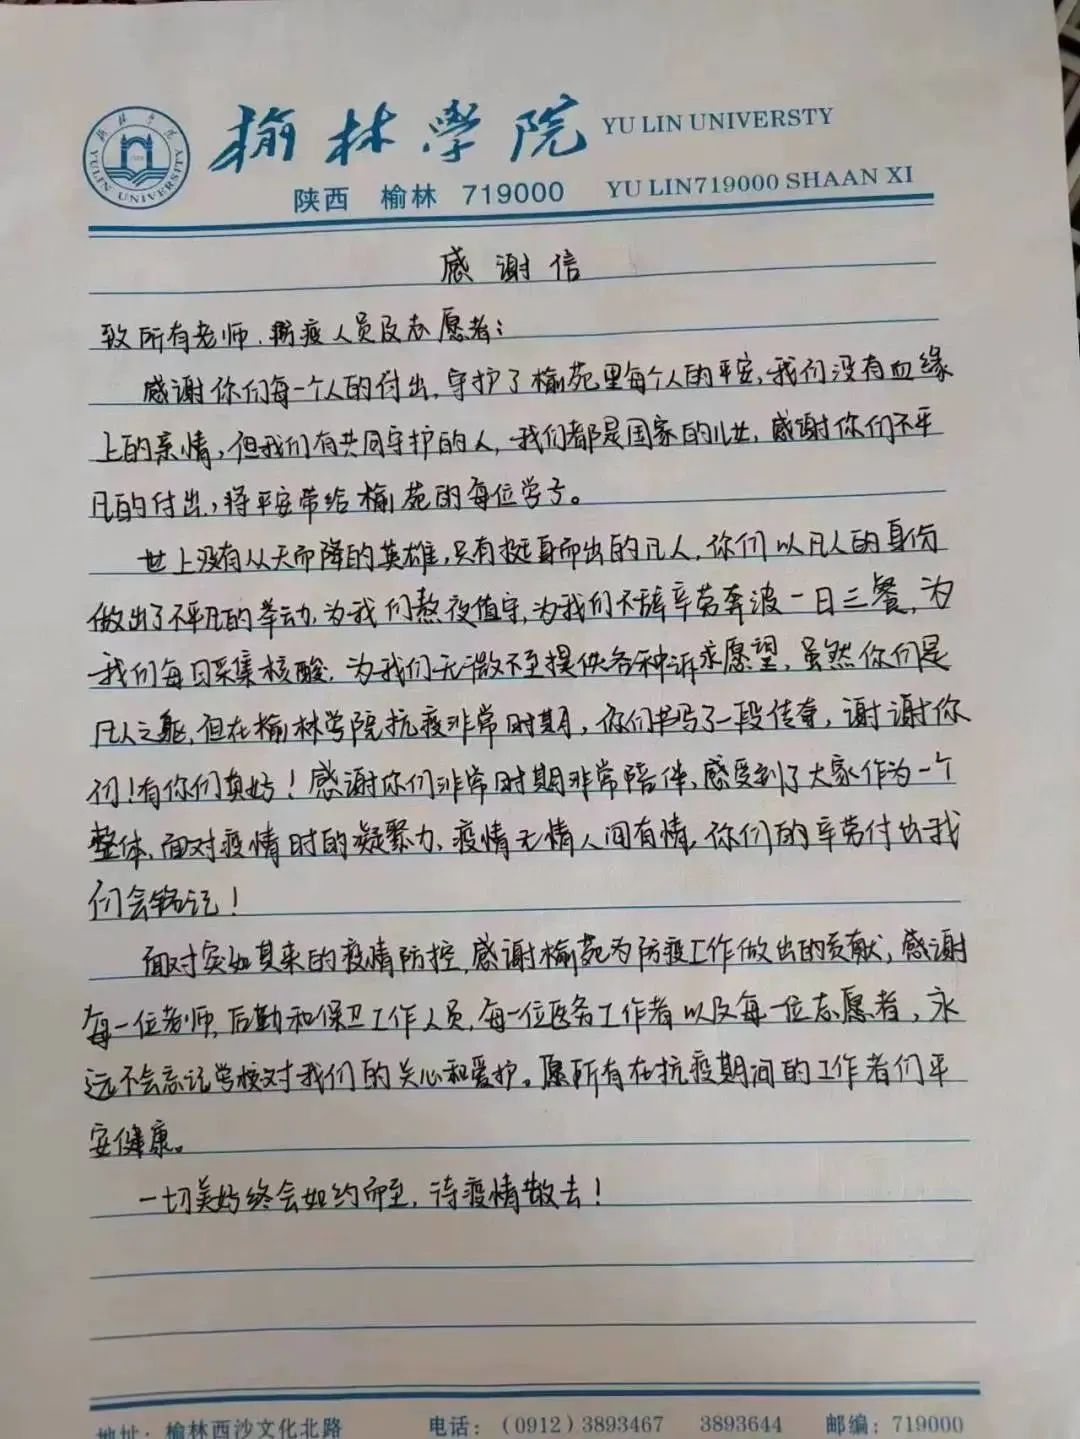 榆林学院 YU LIN UNIVERSTY
YULIN UNIVERSITY
陕西 榆林 719000 YU LIN719000 SHAAN XI
感谢信
致所有老师、防疫人员及志愿者:
感谢你们每一个人的付出,守护了榆苑里每个人的平安,我们没有血缘
上的亲情,但我们有共同守护的人,我们都是国家的儿女,感谢你们不平
凡的付出,将平安带给榆苑的每位学子。
世上没有从天而降的英雄,只有挺身而出的凡人,你们以凡人的身份
做出了不平凡的举动,为我们熬夜值守,为我们不辞辛劳奔波一日三餐,为
我们每日采集核酸,为我们无微不至提供各种诉求愿望,虽然你们是
凡人之躯,但在榆林学院抗疫非常时期,你们书写了一段传奇,谢谢你
们!有你们真好!感谢你们非常时期非常陪伴,感受到了大家作为一个
整体,面对疫情时的凝聚力,疫情无情人间有情,你们的辛劳付出我
们会铭记!
面对突如其来的疫情防控,感谢榆苑为防疫工作做出的贡献,感谢
每一位老师,后勤和保卫工作人员,每一位医务工作者以及每一位志愿者,永
远不会忘记学校对我们的关心和爱护。愿所有在抗疫期间的工作者们平
安健康。
一切美好终会如约而至,待疫情散去!
地址:榆林西沙文化北路 电话:(0912)3893467 3893644 邮编:719000